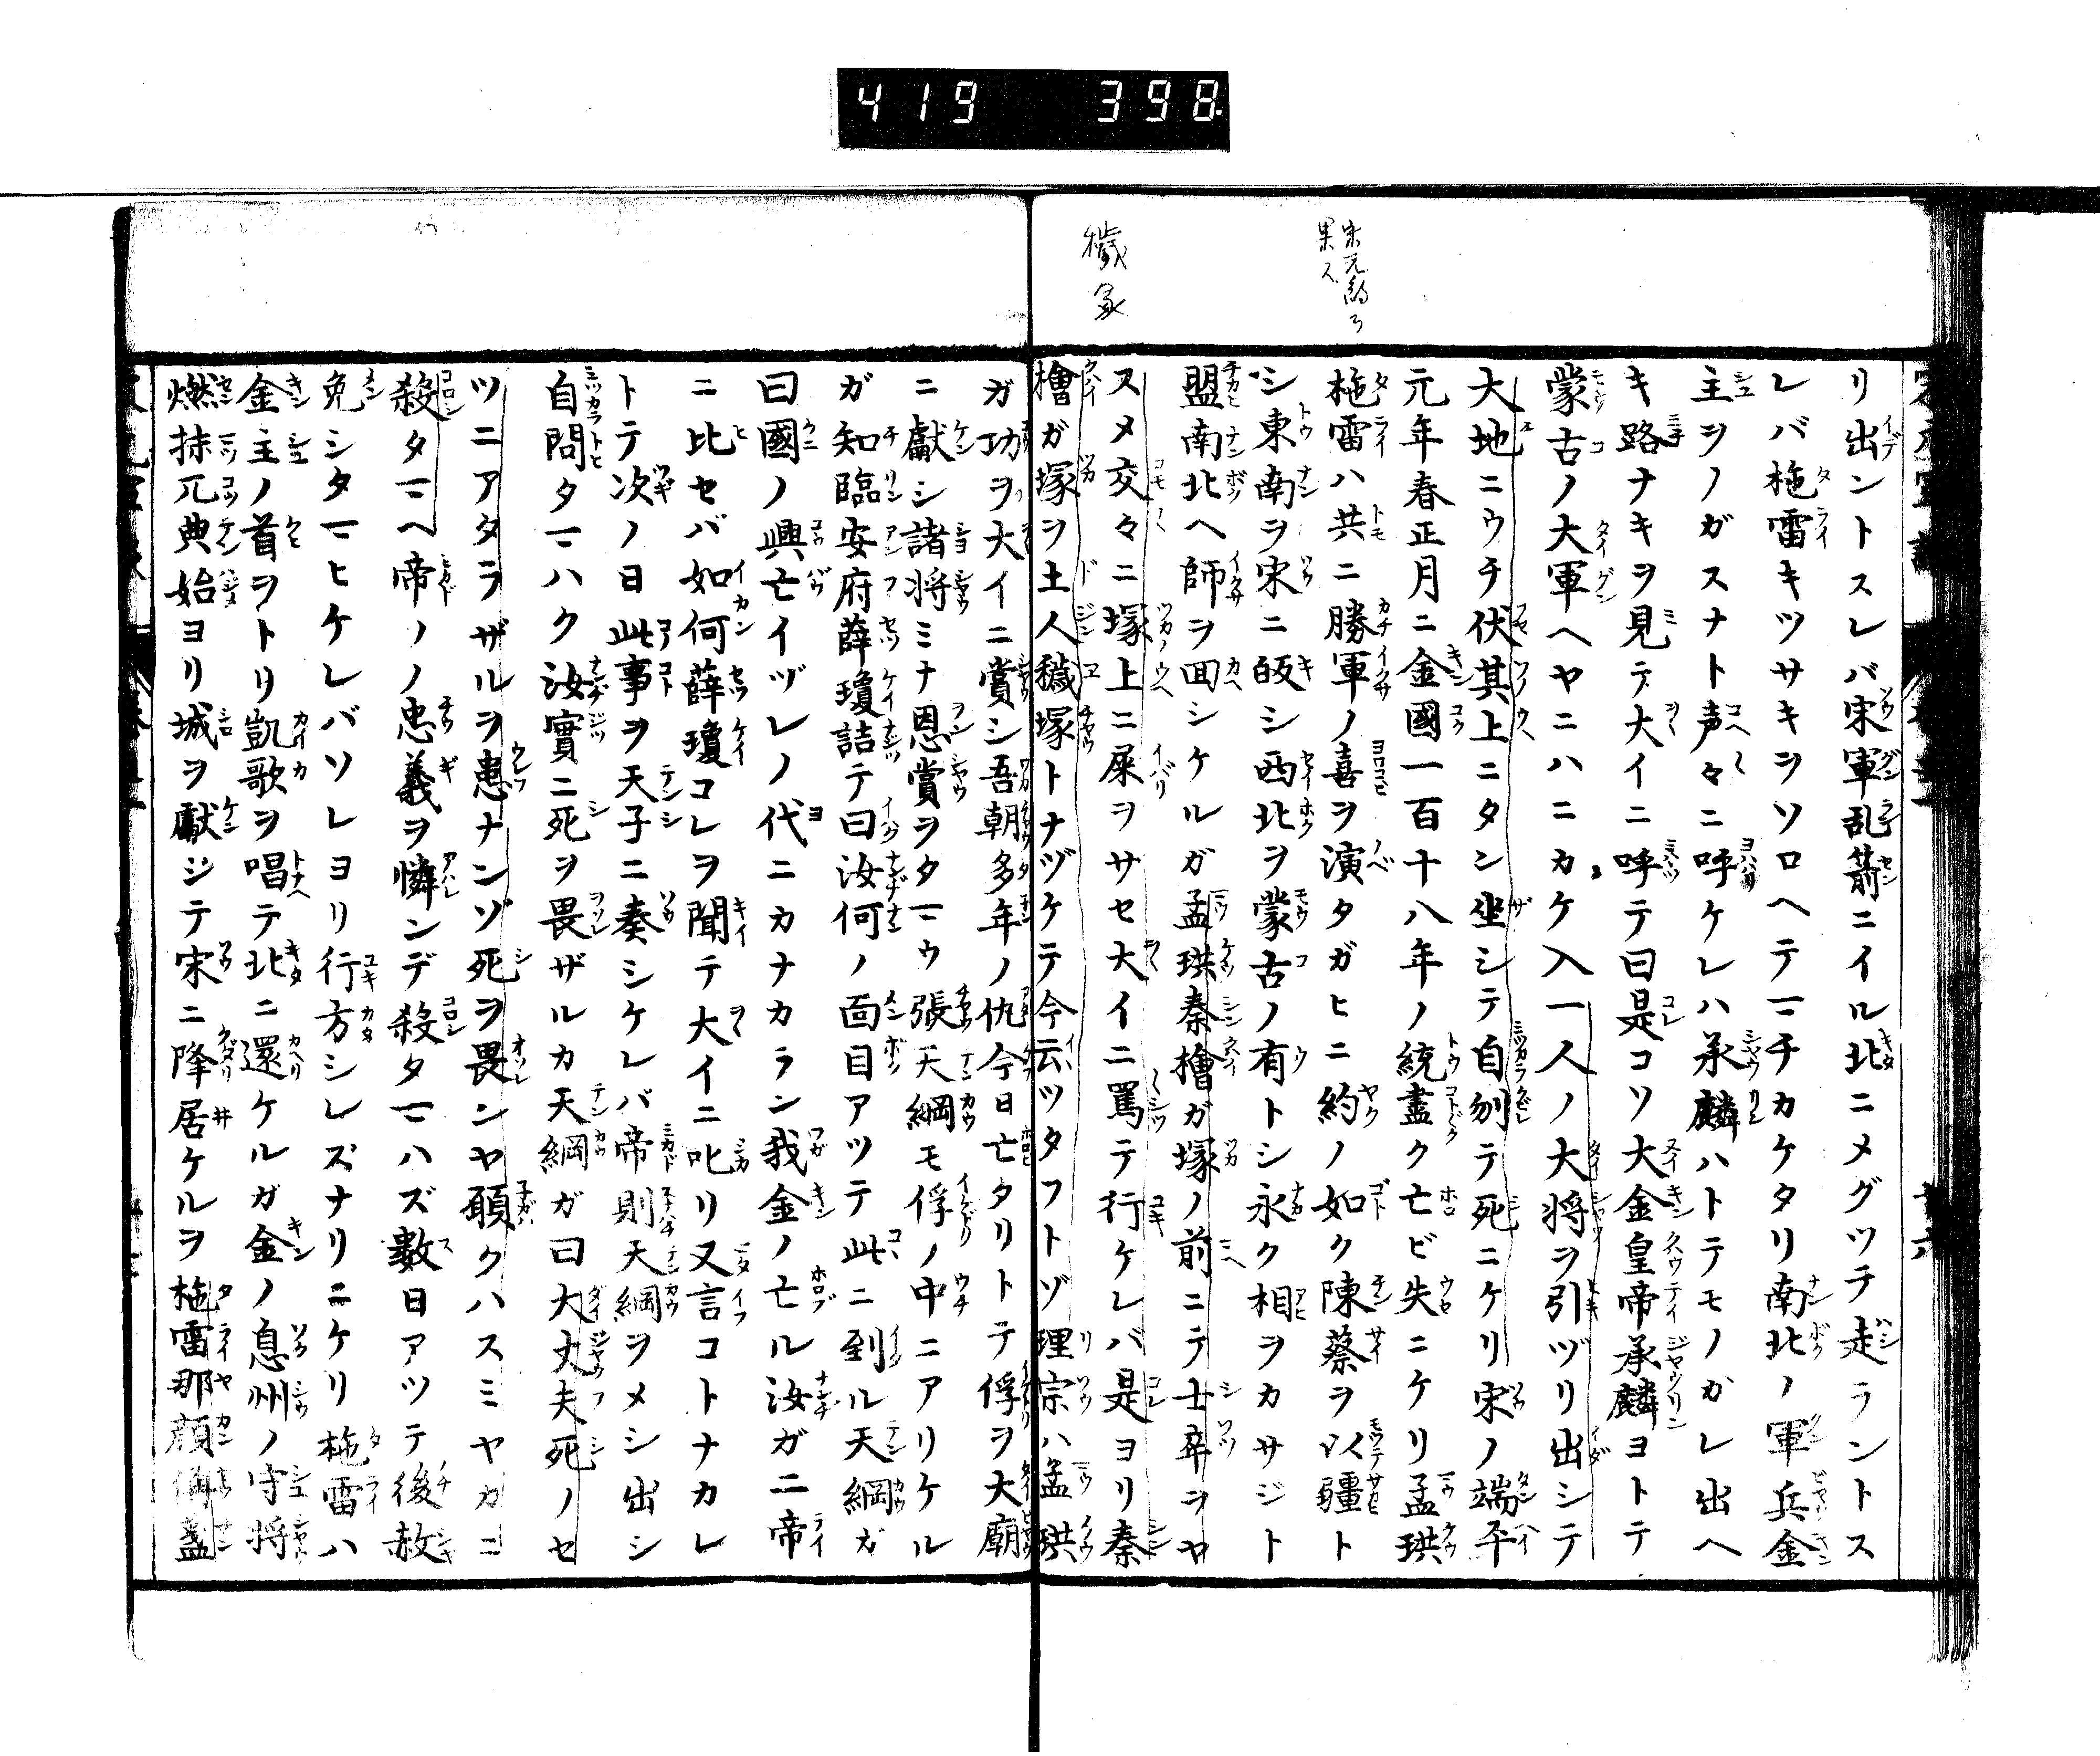 419 398
穢冢
リ出ントスレバ宋軍乱箭ニイル北ニメグツチ走ラントス
レバ拖雷キツサキヲソロヘテマチカケタリ南北ノ軍兵金
主ヲノガスナト声々ニ呼ケレハ承麟ハトテモノカレ出ヘ
キ路ナキヲ見テ大イニ呼テ曰是コソ大金皇帝承麟ヨトテ
蒙古ノ大軍ヘヤニハニカケ入一人ノ大将ヲ引ヅリ出シテ
大地ニウチ伏其上ニタン坐シテ自刎テ死ニケリ宋ノ端平
元年春正月ニ金國一百十八年ノ統盡ク亡ビ失ニケリ孟珙
拖雷ハ共ニ勝軍ノ喜ヲ演タガヒニ約ノ如ク陳蔡ヲ以疆ト
シ東南ヲ宋ニ皈シ西北ヲ蒙古ノ有トシ永ク相ヲカサジト
盟南北ヘ師ヲ囬シケルガ孟珙秦檜ガ塚ノ前ニテ士卒ヲヤ
スメ交々ニ塚上ニ屎ヲサセ大イニ罵テ行ケレバ是ヨリ秦
檜ガ塚ヲ土人穢塚トナヅケテ今云ツタフトゾ理宗ハ孟珙
ガ功ヲ大イニ賞シ吾朝多年ノ仇今日亡タリトテ俘ヲ大廟
ニ獻シ諸将ミナ恩賞ヲタマウ張天綱モ俘ノ中ニアリケル
ガ知臨安府薛瓊詰テ曰汝何ノ面目アツテ此ニ到ル天綱ガ
曰國ノ興亡イヅレノ代ニカナカラン我金ノ亡ル汝ガ二帝
ニ比セバ如何薛瓊コレヲ聞テ大イニ叱リ又言コトナカレ
トテ次ノ日此事ヲ天子ニ奏シケレバ帝則天綱ヲメシ出シ
自問タマハク汝實ニ死ヲ畏ザルカ天綱ガ曰大丈夫死ノセ
ツニアタラザルヲ患ナンゾ死ヲ畏ンヤ願クハスミヤカニ
殺タマヘ帝ソノ忠義ヲ憐ンデ殺タマハズ數日アツテ後赦
免シタマヒケレバソレヨリ行方シレズナリニケリ拖雷ハ
金主ノ首ヲトリ凱歌ヲ唱テ北ニ還ケルガ金ノ息州ノ守将
燃抹兀典始ヨリ城ヲ獻ジテ宋ニ降居ケルヲ拖雷那顔備盞